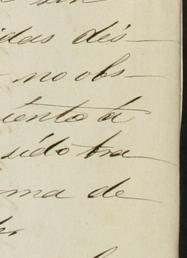 idas dis-
no obs-
iento á
sido tra
ma de